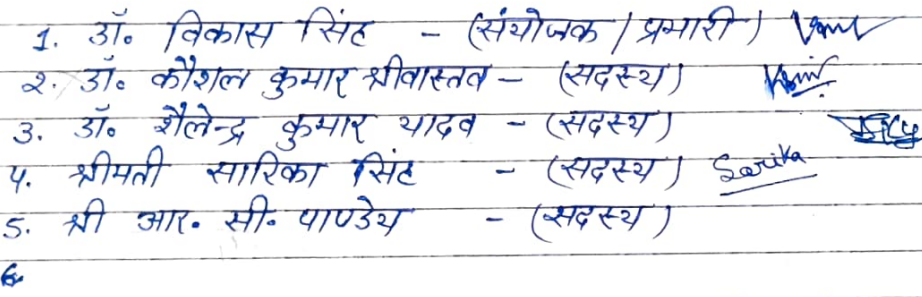 1. डॉ. विकास सिंह - (संयोजक / प्रभारी)
2. डॉ. कौशल कुमार श्रीवास्तव - (सदस्य)
3. डॉ. शैलेन्द्र कुमार यादव - (सदस्य)
4. श्रीमती सारिका सिंह - (सदस्य) Sarika
5. श्री आर. सी. पाण्डेय - (सदस्य)
6.